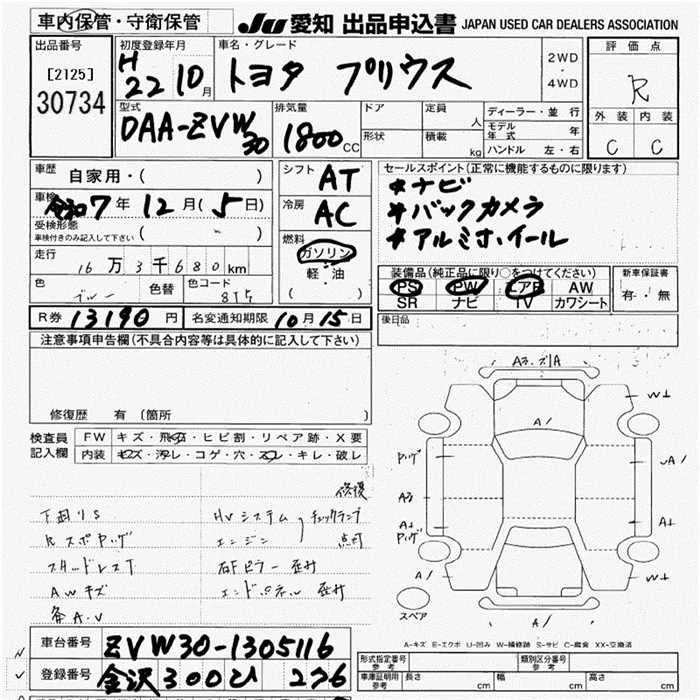 車内保管・守衛保管
JU 愛知 出品申込書 JAPAN USED CAR DEALERS ASSOCIATION
出品番号
[2125]
30734
初度登録年月
H22 10月
車名・グレード
トヨタ プリウス
2WD
・
4WD
評価点
R
外装 内装
C C
型式
DAA-ZVW30
排気量
1800cc
ドア
定員 人
形状
積載 kg
ディーラー・並行
モデル年式 年
ハンドル 左・右
車歴
自家用・( )
車検
令和7年12月(5日)
受検形態
車検付きのみ記入して下さい ( )
走行
16万3千680km
色
ブルー
色替
色コード
シフト AT
冷房 AC
燃料
ガソリン
軽・油
( )
セールスポイント(正常に機能するものに限ります)
*ナビ
*バックカメラ
*アルミホイール
装備品(純正品に限り○をつけてください)
PS PW エアB AW
SR ナビ TV カワシート
新車保証書
有・無
R券 13190円
名変通知期限 10月15日
後日品
注意事項申告欄(不具合内容等は具体的に記入して下さい)
修復歴 有 (箇所
検査員記入欄
FW キズ・飛石・ヒビ割・リペア跡・X要
内装 キズ・汚レ・コゲ・穴・スレ・キレ・破レ
修復
下回りS
HVシステム
チェックランプ
エンジン
点灯
スタッドレスT
AWキズ
エンドパネル
W⊥
A/
A⊥
スペア
A-キズ E-エクボ U-凹み W-補修跡 S-サビ C-腐食 XX-交換済
車台番号 ZVW30-1305116
登録番号 金沢300ひ 276
形式指定番号 参考
類別区分番号 参考
車庫証明用 参考
長さ cm 幅 cm 高さ cm